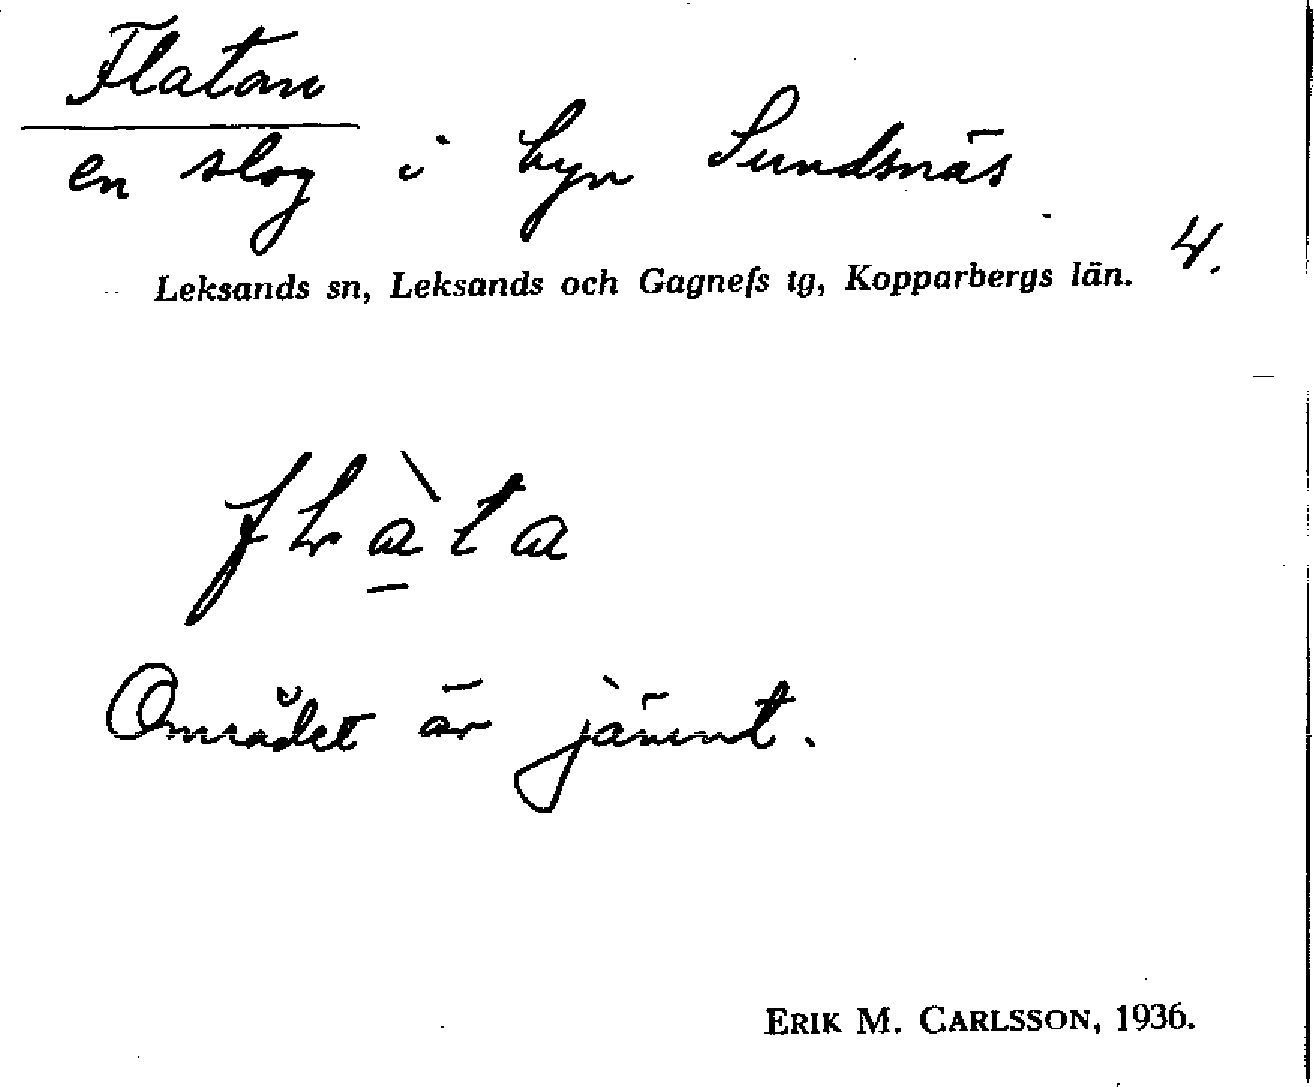 Flatan
en slog i byn Sundsnäs
4.
Leksands sn, Leksands och Gagnefs tg, Kopparbergs län.
flàta
Området är jämnt.
ERIK M. CARLSSON, 1936.